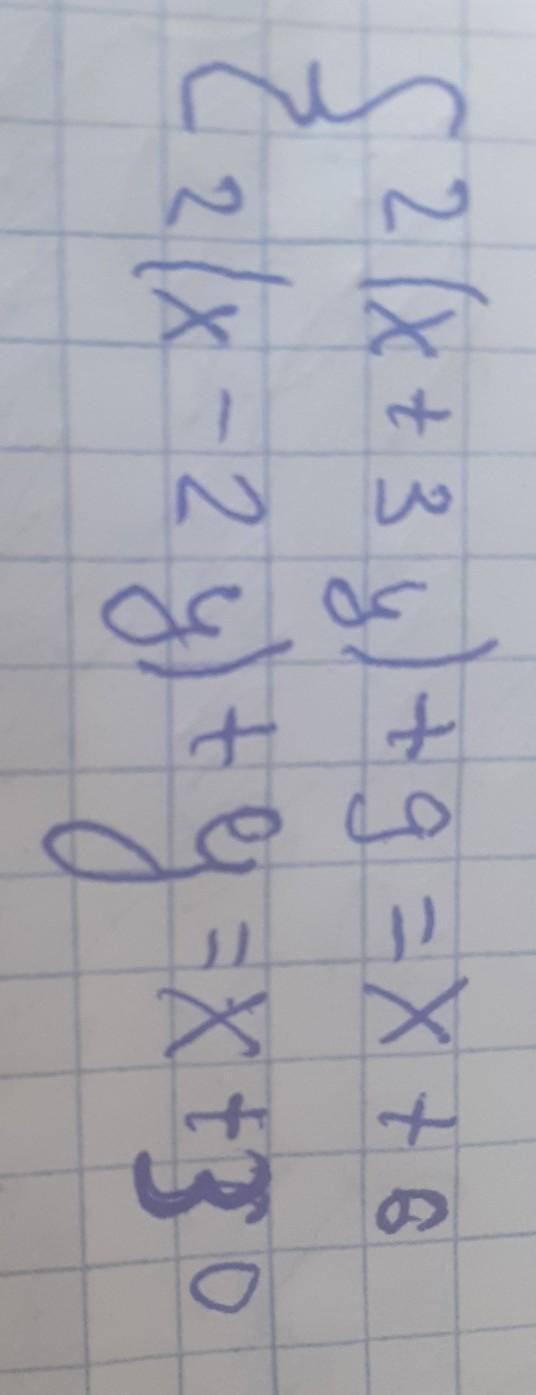 { 2(x+3y)+9=x+6
2(x-2y)+y=x+30